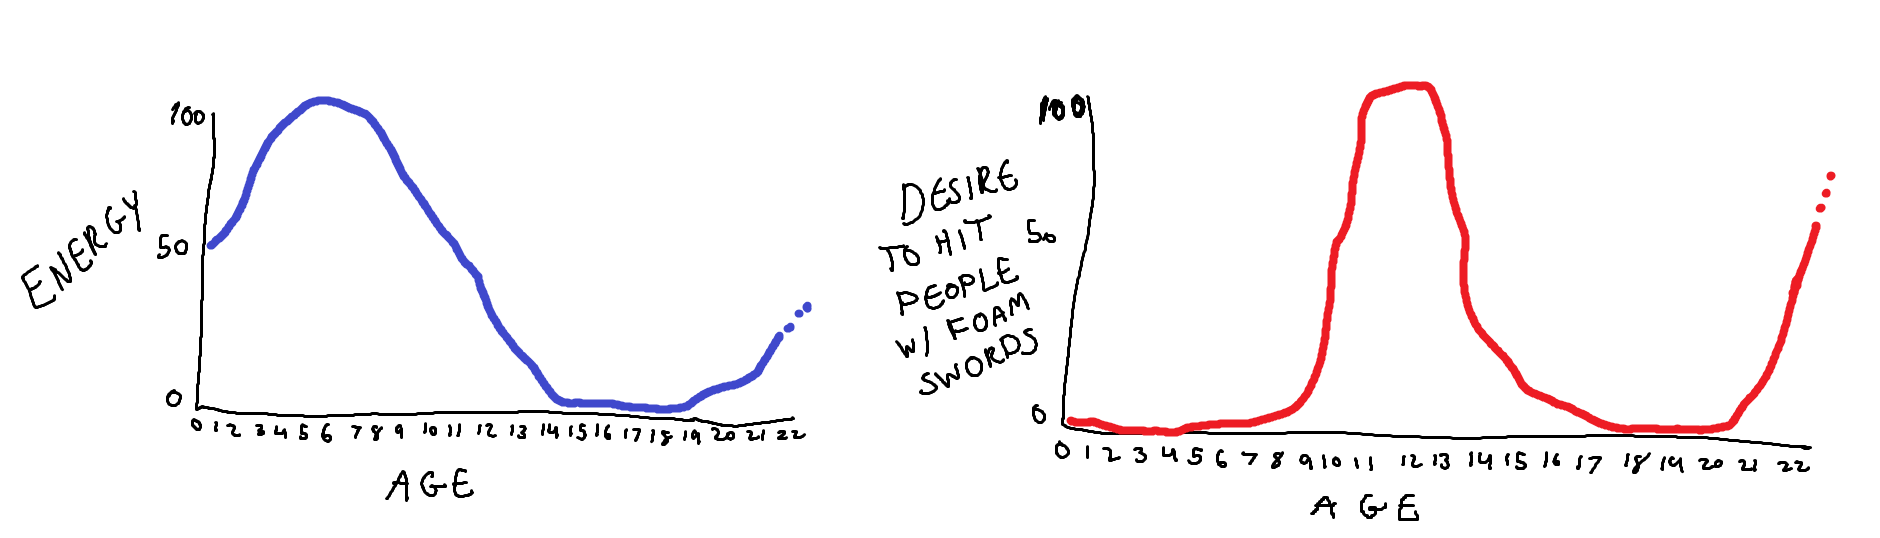 100
ENERGY
50
0
0 1 2 3 4 5 6 7 8 9 10 11 12 13 14 15 16 17 18 19 20 21 22
AGE
100
DESIRE
TO HIT
PEOPLE
W/ FOAM
SWORDS
50
0
0 1 2 3 4 5 6 7 8 9 10 11 12 13 14 15 16 17 18 19 20 21 22
AGE